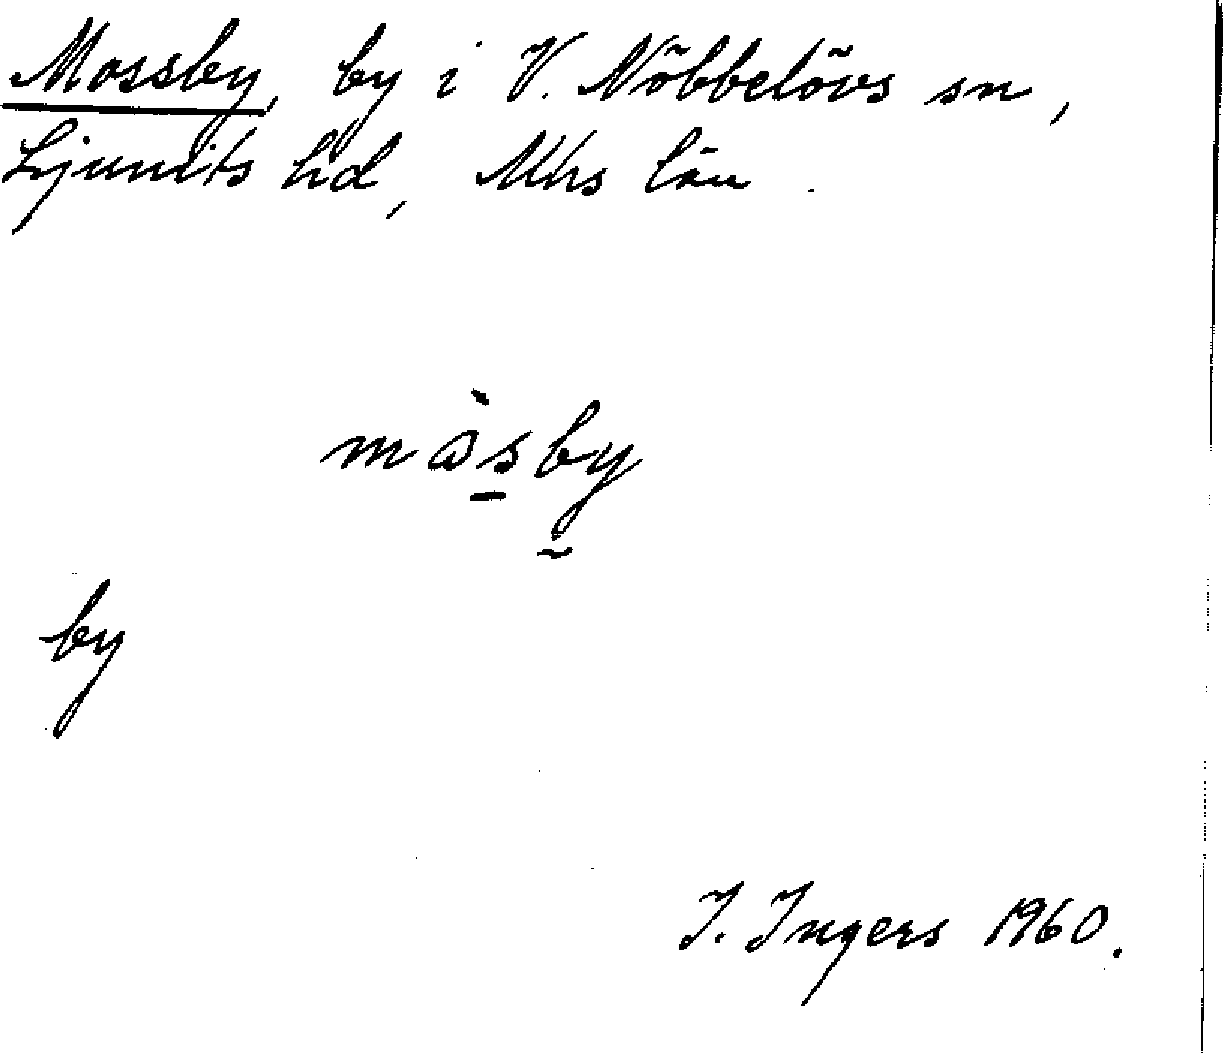 Mossby, by i V. Nöbbelövs sn,
Ljunits hd, Mhs län.
màs̠by̰
by
I. Ingers 1960.